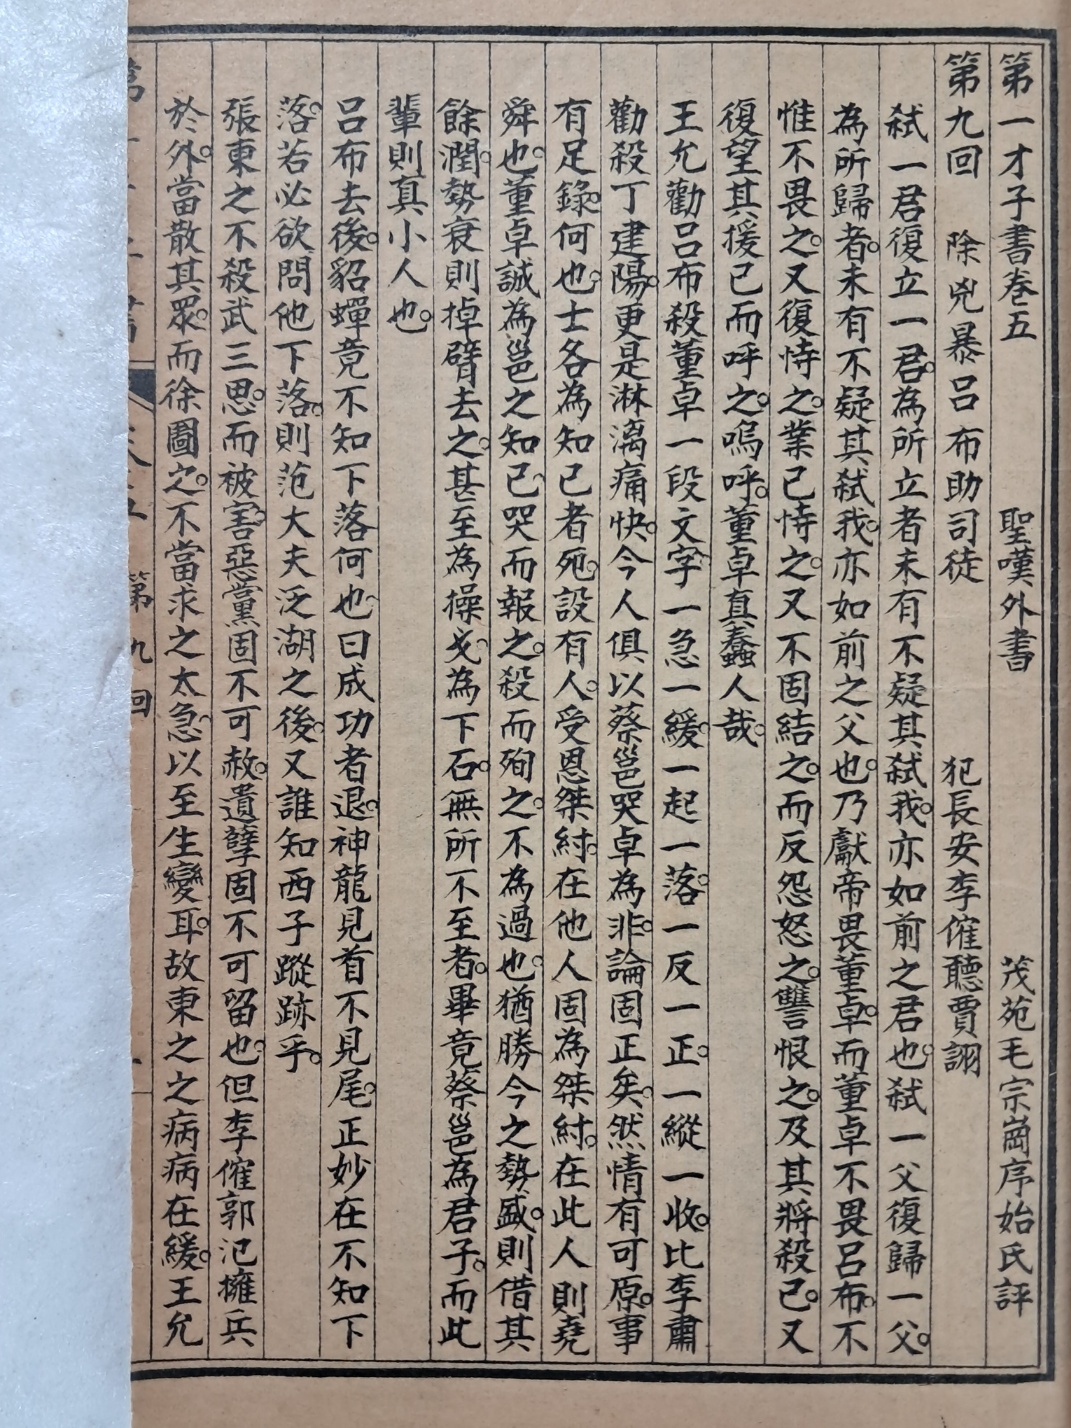 第一才子書卷五　聖嘆外書　茂苑毛宗崗序始氏評
第九回　除兇暴呂布助司徒　犯長安李傕聽賈詡
弑一君復立一君。為所立者未有不疑其弑我。亦如前之君也。弑一父復歸一父。
為所歸者。未有不疑其弑我。亦如前之父也。乃獻帝畏董卓。而董卓不畏呂布。不
惟不畏之。又復恃之。業已恃之。又不固結之。而反怨怒之。讐恨之。及其將殺己。又
復望其援己而呼之。嗚呼。董卓真蠢人哉。
王允勸呂布殺董卓一段文字。一急一緩。一起一落。一反一正。一縱一收。比李肅
勸殺丁建陽。更是淋漓痛快。今人俱以蔡邕哭卓為非。論固正矣。然情有可原。事
有足錄。何也。士各為知己者死。設有人。受恩桀紂。在他人固為桀紂。在此人則堯
舜也。董卓誠為邕之知己。哭而報之。殺而殉之。不為過也。猶勝今之勢盛。則借其
餘潤。勢衰則掉臂去之。甚至為操戈。為下石。無所不至者。畢竟蔡邕為君子。而此
輩則真小人也。
呂布去後。貂蟬竟不知下落。何也。曰成功者退。神龍見首不見尾。正妙在不知下
落。若必欲問他下落。則范大夫泛湖之後。又誰知西子蹤跡乎。
張柬之不殺武三思。而被害。惡黨固不可赦。遺孽固不可留也。但李傕郭汜擁兵
於外。當散其眾。而徐圖之。不當求之太急。以至生變耳。故柬之之病病在緩。王允
第九回